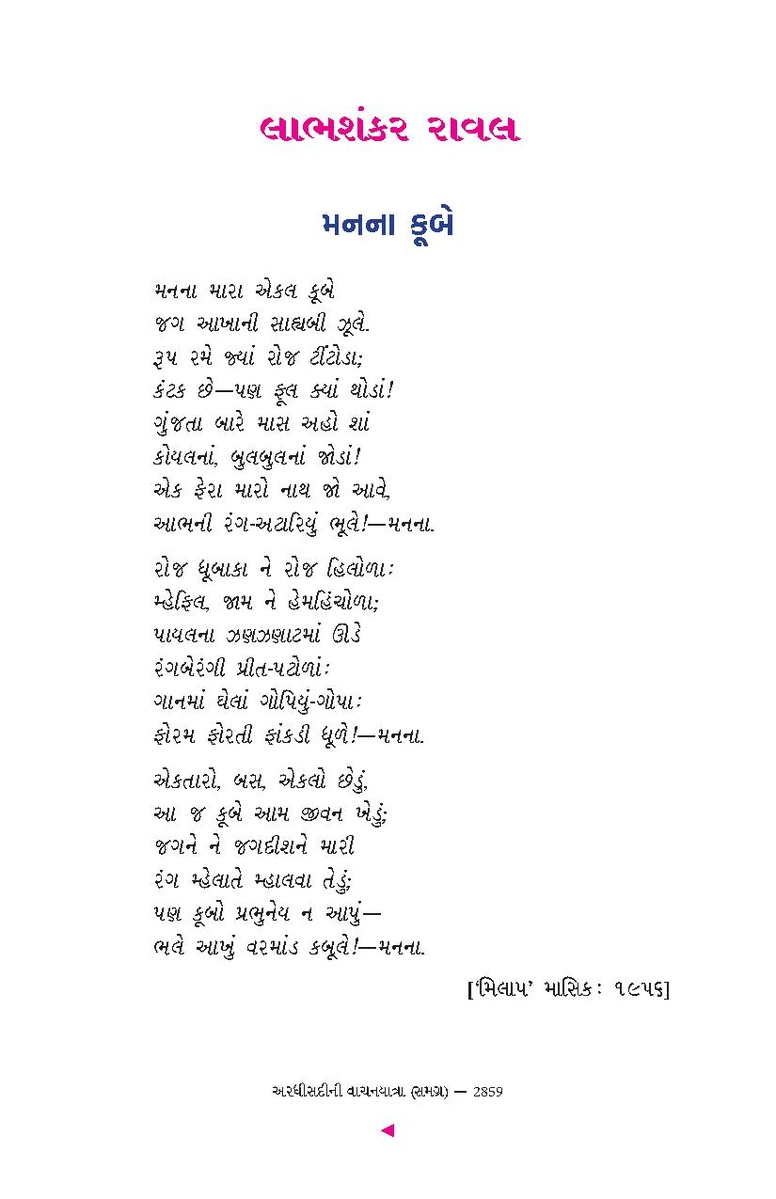 લાભશંકર રાવલ
મનના કૂબે
મનના મારા એકલ કૂબે
જગ આખાની સાહ્યબી ઝૂલે.
રૂપ રમે જ્યાં રોજ ટીંટોડા;
કંટક છે—પણ ફૂલ ક્યાં થોડાં!
ગુંજતા બારે માસ અહો શાં
કોયલનાં, બુલબુલનાં જોડાં!
એક ફેરા મારો નાથ જો આવે,
આભની રંગ-અટારિયું ભૂલે!—મનના.
રોજ ધૂબાકા ને રોજ હિલોળા:
મ્હેફિલ, જામ ને હેમહિંચોળા;
પાયલના ઝણઝણાટમાં ઊડે
રંગબેરંગી પ્રીત-પટોળાં:
ગાનમાં ઘેલાં ગોપિયું-ગોપા:
ફોરમ ફોરતી ફાંકડી ધૂળે!—મનના.
એકતારો, બસ, એકલો છેડું,
આ જ કૂબે આમ જીવન ખેડું;
જગને ને જગદીશને મારી
રંગ મ્હેલાતે મ્હાલવા તેડું;
પણ કૂબો પ્રભુનેય ન આપું—
ભલે આખું વરમાંડ કબૂલે!—મનના.
[‘મિલાપ’ માસિક: ૧૯૫૬]
અરધીસદીની વાચનયાત્રા (સમગ્ર) — 2859